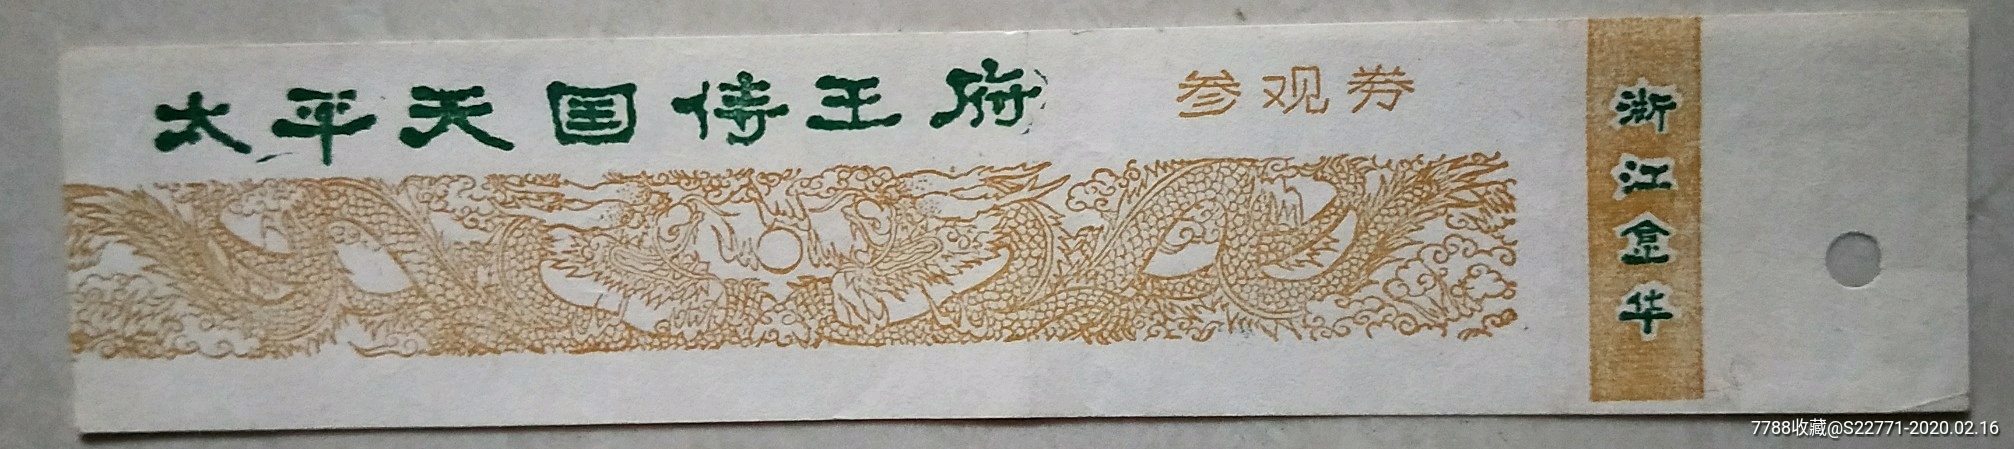 太平天囯侍王府
参观券
浙江金华
7788收藏@S22771-2020.02.16